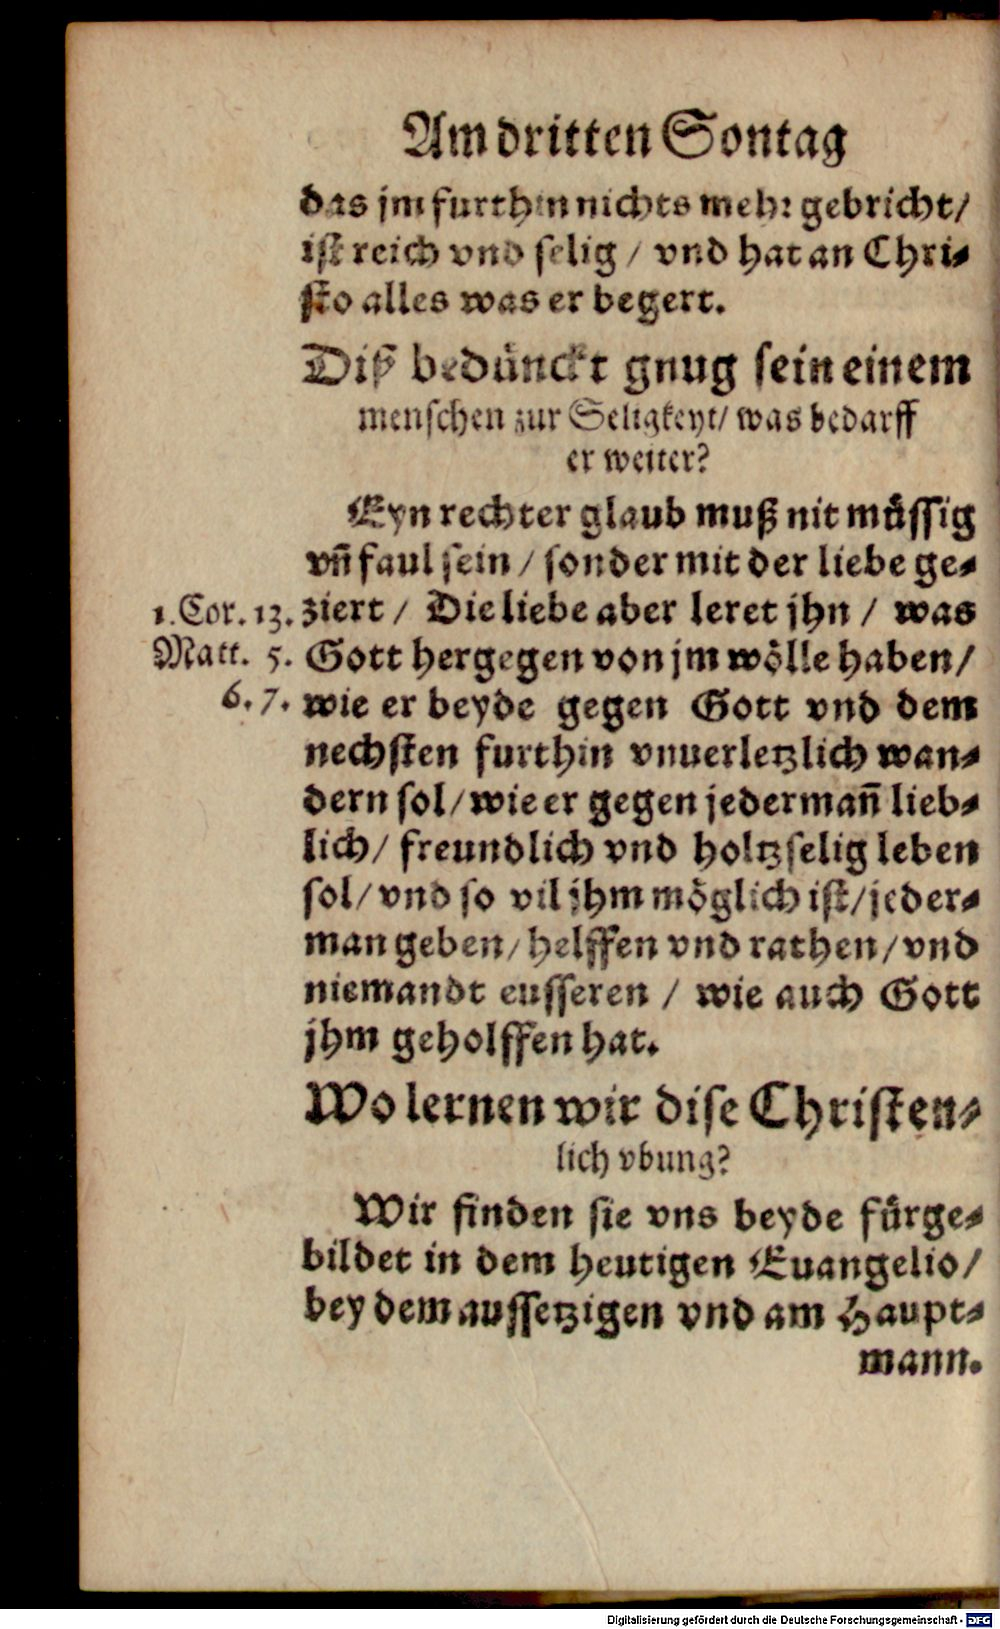 Am dritten Sontag
das jm furthin nichts mehr gebricht/
ist reich vnd selig / vnd hat an Chri-
sto alles was er begert.
Diß bedünckt gnug sein einem
menschen zur Seligkeyt/ was bedarff
er weiter?
Eyn rechter glaub muß nit müssig
vn̄ faul sein / sonder mit der liebe ge-
1. Cor. 13. ziert / Die liebe aber leret jhn / was
Matt. 5. Gott hergegen von jm wölle haben/
6. 7. wie er beyde gegen Gott vnd dem
nechsten furthin vnuerletzlich wan-
dern sol/ wie er gegen jederman̄ lieb-
lich/ freundlich vnd holtzselig leben
sol/ vnd so vil jhm möglich ist/ jeder-
man geben/ helffen vnd rathen/ vnd
niemandt eusseren / wie auch Gott
jhm geholffen hat.
Wo lernen wir dise Christen-
lich vbung?
Wir finden sie vns beyde fürge-
bildet in dem heutigen Euangelio/
bey dem aussetzigen vnd am Haupt-
mann.
Digitalisierung gefördert durch die Deutsche Forschungsgemeinschaft - DFG